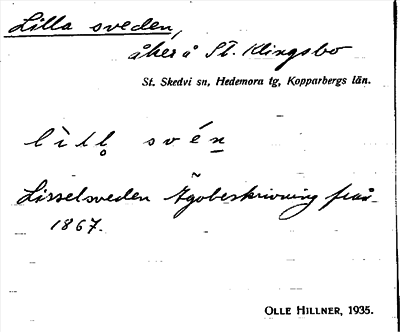 Lilla sveden,
åker å St. Klingsbo
St. Skedvi sn, Hedemora tg, Kopparbergs län.
lìtl̥ svén̲
Lisselsveden Ägobeskrivning från
1867.
OLLE HILLNER, 1935.